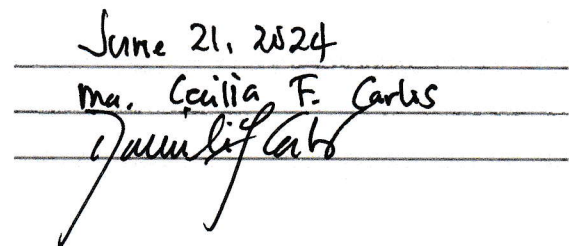 June 21, 2024
ma. Cecilia F. Carlos